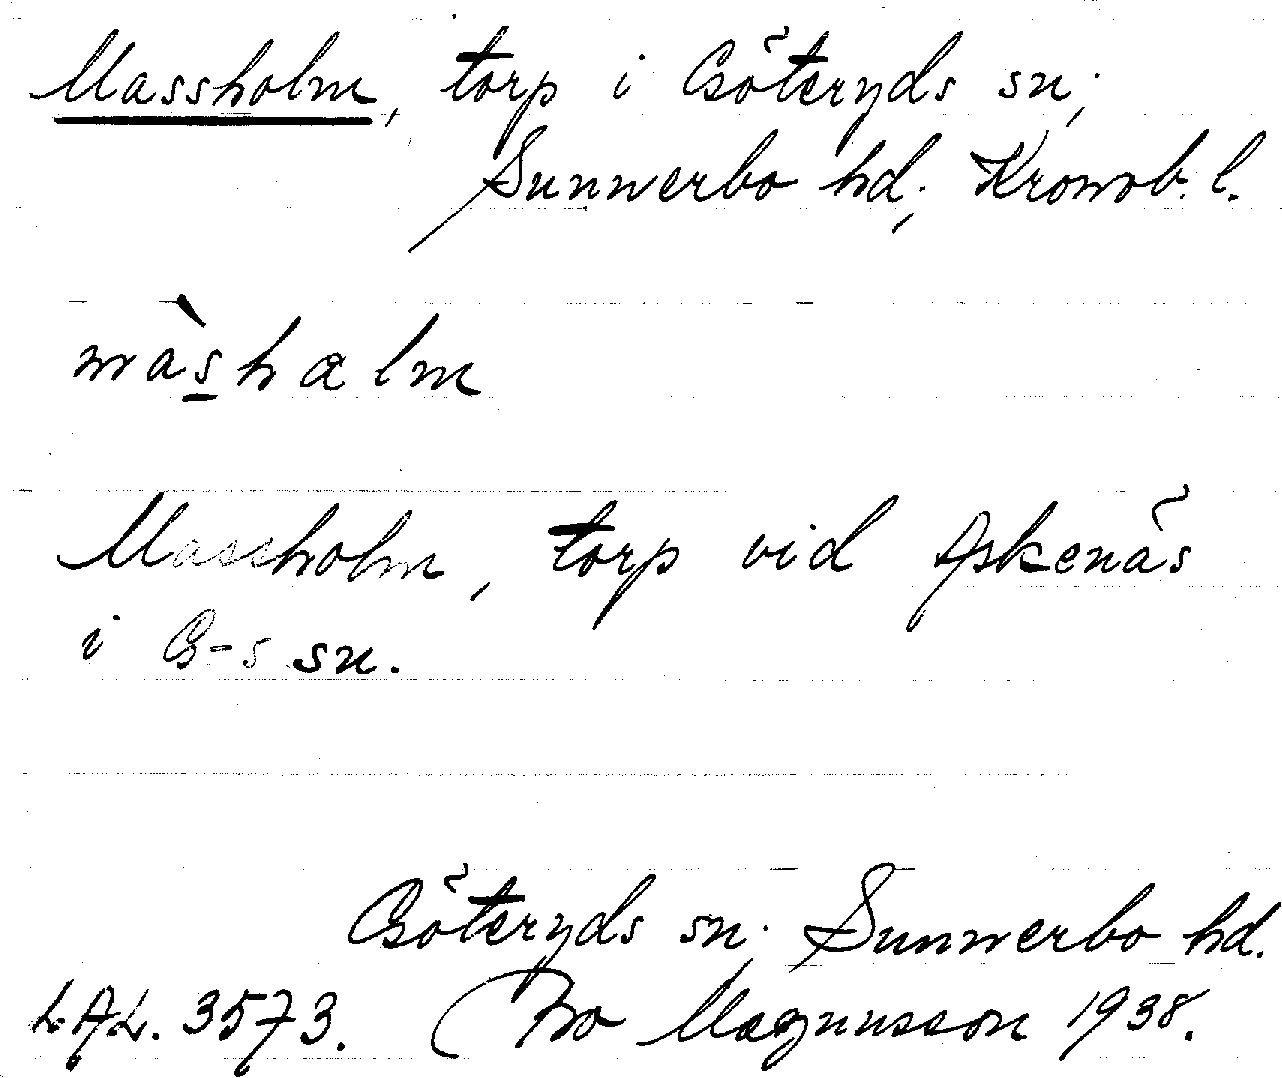 Massholm, torp i Göteryds sn;
Sunnerbo hd; Kronob. l.
màshalm
Massholm, torp vid Askenäs
i G-s sn.
Göteryds sn; Sunnerbo hd.
LAL. 3573. Bo Magnusson 1938.